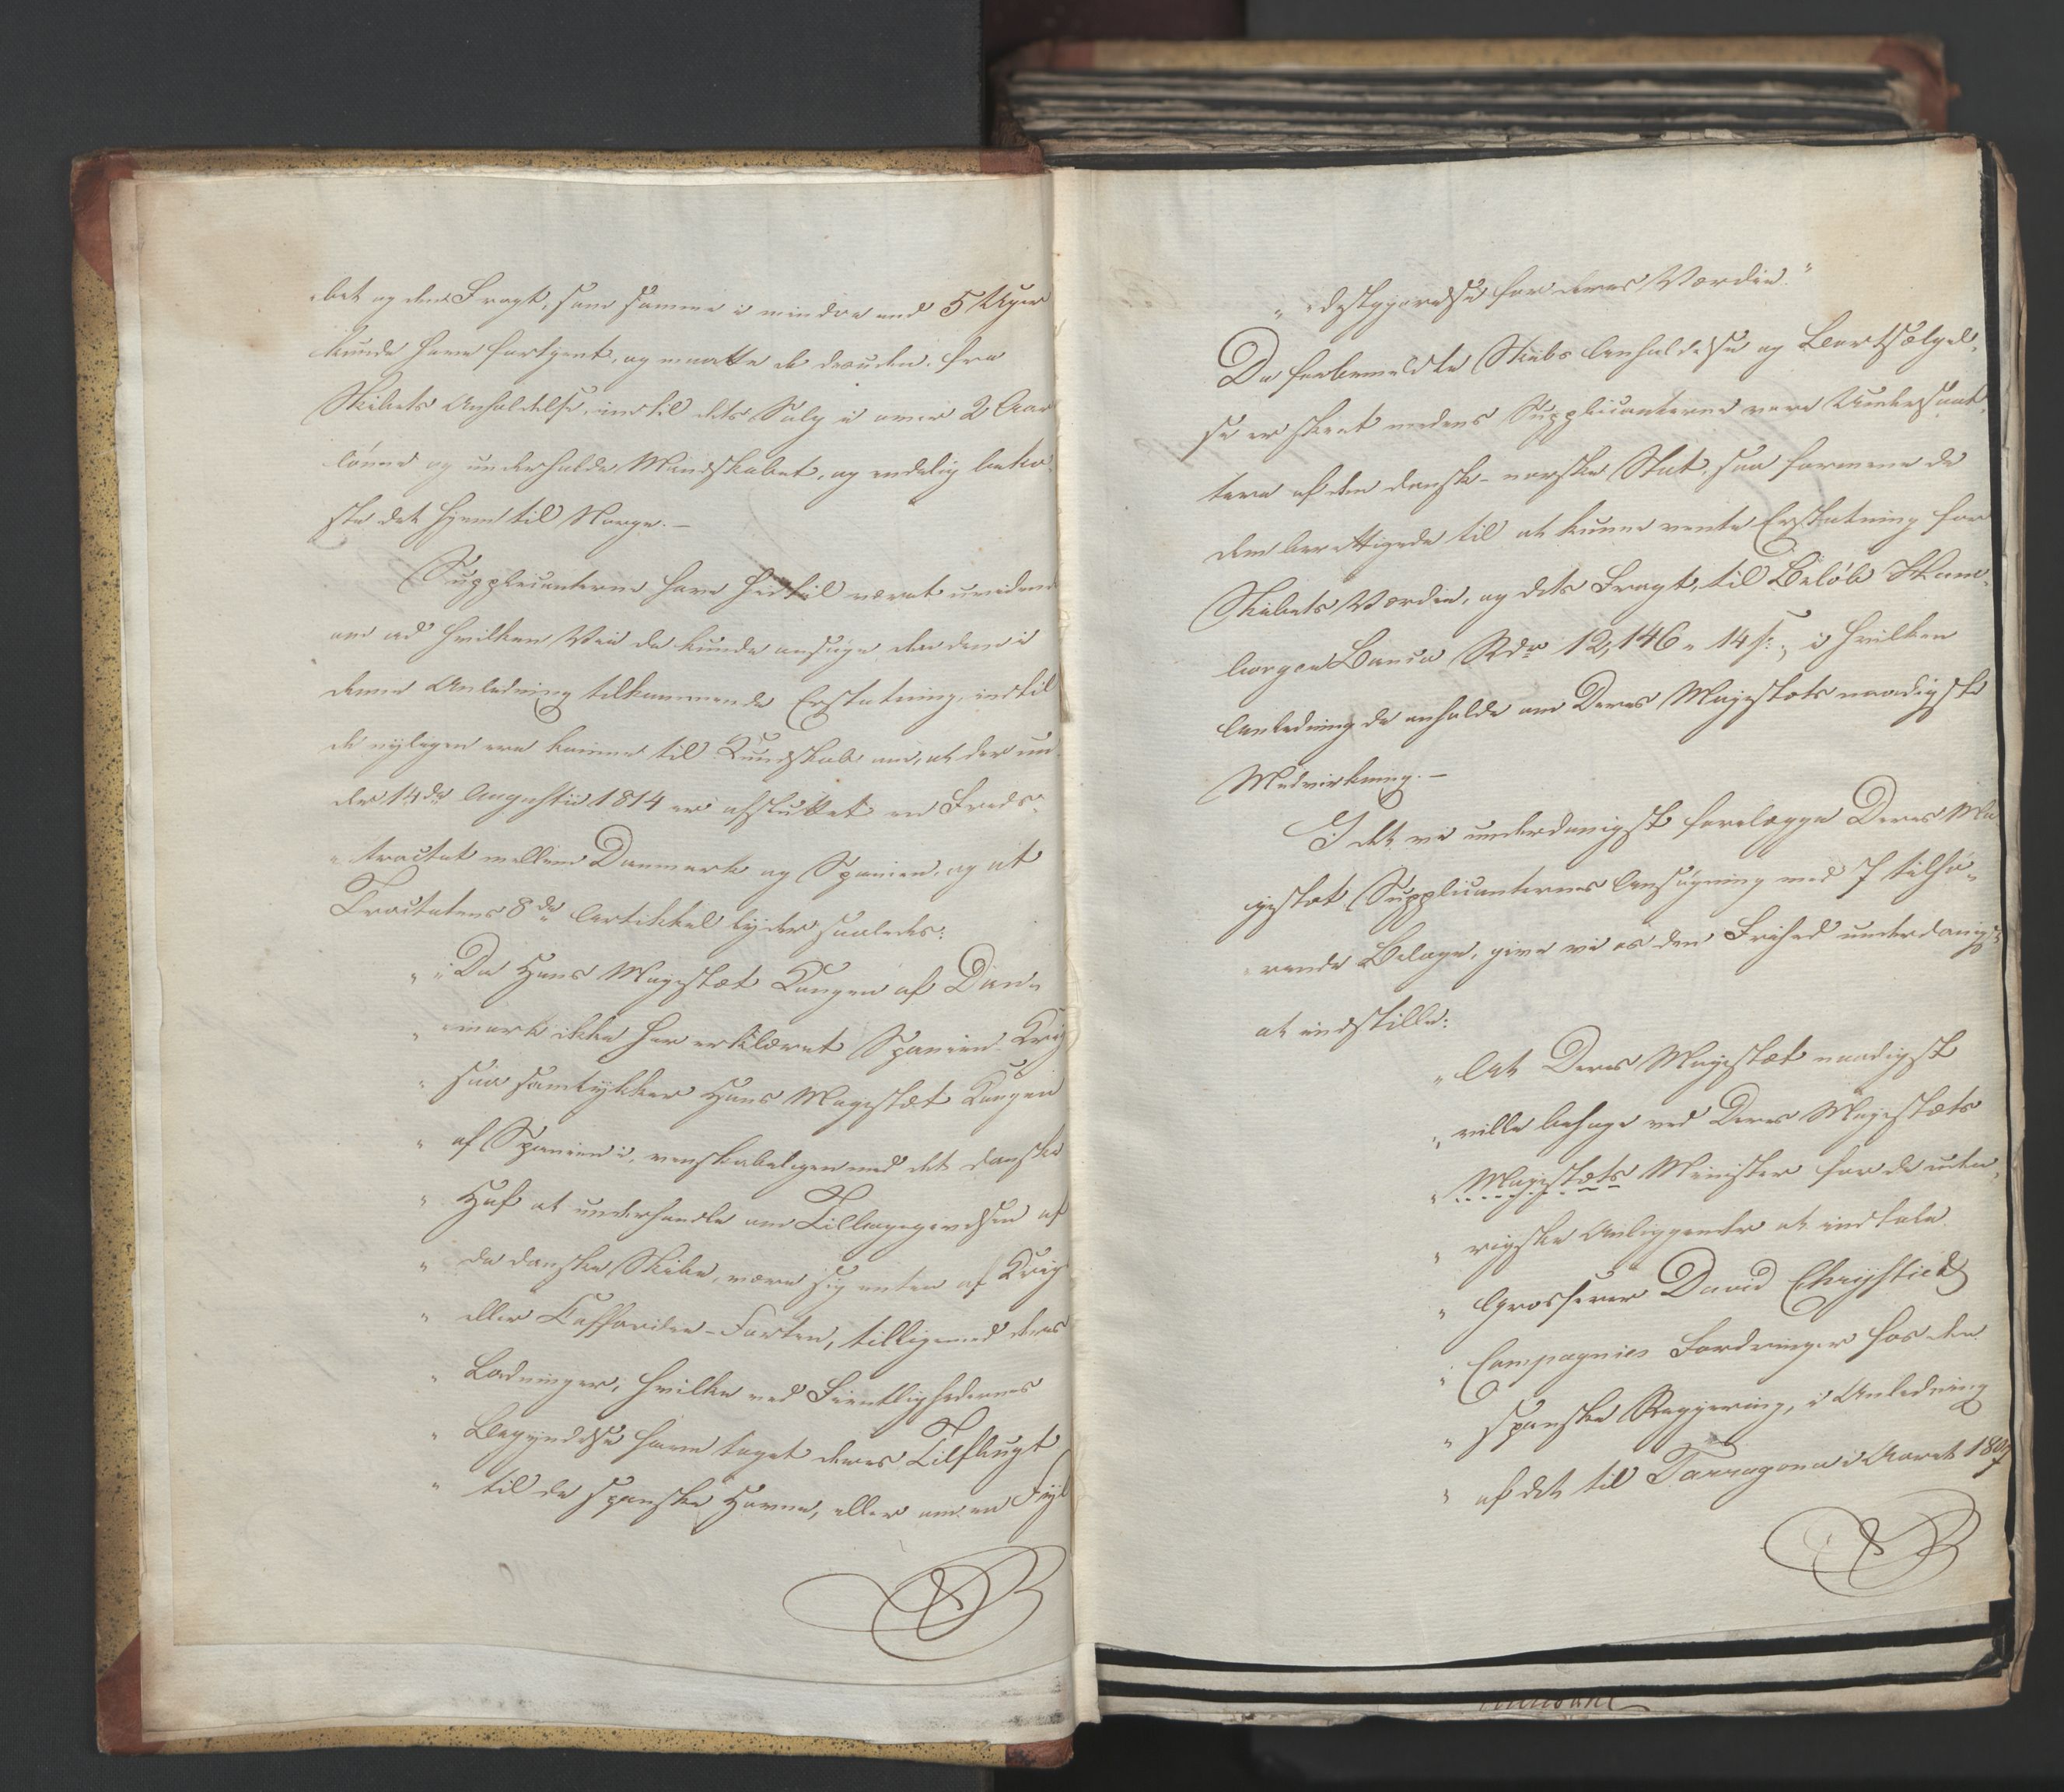 bet og den Fragt, som samme i mindre end 5 Uger
kunde have fortjent, og maatte de desuden, fra
Skibets Anholdelse, indtil dets Salg i over 2 Aar
lönne og underholde Mandskabet, og endelig beko¬
ste det hjem til Norge. —
Supplicanterne have hidtil været uvidende
om ad hvilken Vei de kunde ansøge den dem i
denne Anledning tilkommende Erstatning, indtil
de nyligen ere komne til Kundskab om, at der un¬
der 14de Augustii 1814 er afsluttet en Freds¬
tractat mellem Danmark og Spanien, og at
Tractatens 8de Artikkel lyder saaledes:
" "Da Hans Majestæt Kongen af Dan¬
" mark ikke har erklæret Spanien Krig
" saa samtykker Hans Majestæt Kongen
" af Spanien i, venskabeligen med det danske
" Hof at underhandle om Tilbagegivelsen af
" de danske Skibe, være sig enten af Krigs
" eller Coffardie-Farten, tilligemed deres
" Ladninger, hvilke ved Fiendtlighedernes
" Begyndelse have taget deres Tilflugt
" til de spanske Havne, eller om en Fyl¬
" "destgjørelse for deres Værdie."
Da forbemeldte Skibs Anholdelse og Bortsælgel¬
se er skeet medens Supplicanterne vare Undersaat¬
tere af den dansk-norske Stat, saa formene de
dem berettigede til at kunne vente Erstatning for
Skibets Værdie, og dets Fragt, til Beløb Ham¬
borger Banco Rdr 12,146 " 14 s:, i hvilken
Anledning de anholde om Deres Majestæts naadigste
Medvirkning. —
I det vi underdanigst forelægge Deres Ma
jestæt Supplicanternes Ansøgning med 7 tilhø¬
rende Bilage, give vi os den Frihed underdanigst
at indstille:
" At Deres Majestæt naadigst
" ville behage ved Deres Majestæts
" Majestæts Minister for de uden¬
" rigske Anliggender at indtale
" Grosserer David Chrystie &
" Compagnies Fordringer hos den
" spanske Regjering, i Anledning
" af det til Tarragona i Aaret 1807